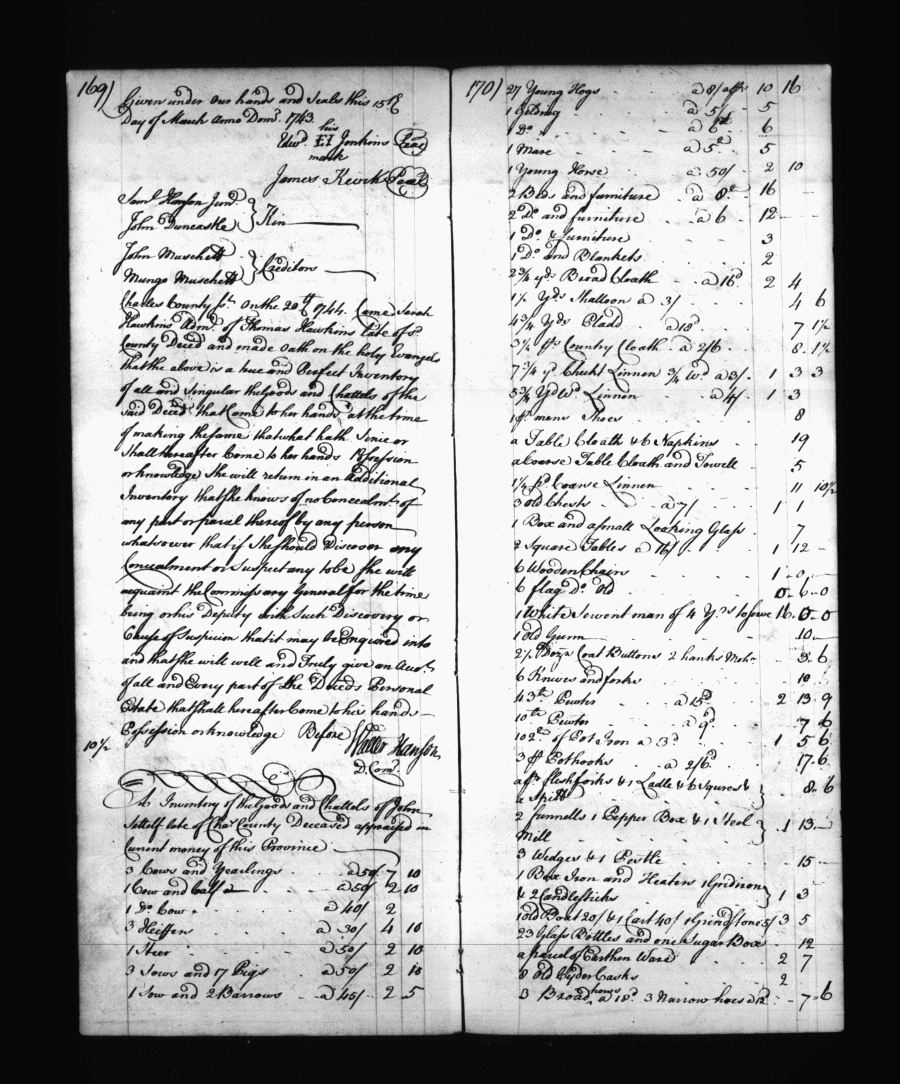 169)
Given under our hands and Seals this 15th
Day of March Anno Dom: 1743
his
Edwd. EI Jenkins Seal
mark
James Keech Seal
Saml. Hanson Junr.
John Duncastle } Kin
John Muschett
Mungo Muschett } Creditors
Charles County Sct. On the 20th 1744. Came Sarah
Hawkins Admx. of Thomas Hawkins late of sd.
County Deced and made Oath on the holy Evangels
that the above is a true and Perfect Inventory
of all and Singular the goods and Chattels of the
said Deced. that Came to her hands at the time
of making the same that what hath Since or
Shall hereafter Come to her hands Possession
or knowledge She will return in an Additional
Inventory that She knows of no Concealmt. of
any part or parcel thereof by any person
whatsoever that if She Should Discover any
Concealment or Suspect any to be She will
acquaint the Commissary General for the time
being or his Deputy with Such Discovery or
Cause of Suspicion that it may be Enquired into
and that She will well and Truly give an Acct.
of all and Every part of the Deceds Personal
Estate that Shall hereafter Come to his hands
Possession or knowledge Before Walter Hanson
10½
D. Com.
An Inventory of the Goods and Chattels of John
late of Chas. County Deceased appraised in
Current money of this Province
3 Cows and Yearlings a 50/ 7 10
1 Cow and Calf a 50/ 2 10
1 Do. Cow a 40/ 2
3 Heiffers a 30/ 4 10
1 Steer a 50/ 2 10
3 Sows and 17 Pigs a 50/ 2 10
1 Sow and 2 Barrows a 45/ 2 5
170)
27 Young Hogs a 8/ 10 16
1 Gelding a 5£ 5
1 Do. a 6£ 6
1 Mare a 5£ 5
1 Young Horse a 50/ 2 10
2 Beds and furniture a 8£ 16
2 Do. and furniture a 6 12
1 Do. & furniture 3
1 Do. and Blankets 2
2¾ yds Broad Cloath a 16/ 2 4
1½ Yds Shalloon a 3/ 4 6
4¾ Yds Pladd a 18d 7 1½
3¼ Country Cloath a 2/6 8 1½
7¾ yd. Checkt Linnen ¾ Wd. a 3/ 1 3 3
5¾ Yd Wd. Linnen a 4/ 1 3
1 pr. mens Shoes 8
a Table Cloath & 6 Napkins 19
a Coarse Table Cloath and Towell 5
Coarse Linnen 11 10½
3 old Chests a 7/ 1 1
1 Box and a small Looking Glass 7
2 Square Tables a 16/ 1 12
6 Wooden Chairs 1 0
6 flag Do. Old 0 6 0
1 White Servent man of 4 Yrs. to serve 16 0 0
1 Old Gunn 10
2½ Dozn Coat Buttons 2 hanks Mohr 3 6
6 Knives and forks 10
43 lb Pewter a 15d 2 13 9
10 lb Pewter a 9d 7 6
102 of Pot Iron a 3d 1 5 6
3 Pothooks a 2/6 17 6
a pr. fleshforks & 1 Ladle & 6 &
a Spitt } 8 6
2 funnells 1 Pepper Box & 1 Steel
Mill } 1 13
3 Wedges & 1 Pestle 15
1 Box Iron and Heaters 1 Gridiron
& 2 Candlesticks } 1 3
1 old Boat 20/ & 1 Cart 40/ 1 Grindstone 5/ 3 5
23 Glass Bottles and one Sugar Box 12
a parcel of Earthen Ware 2 7
8 Old Cyder Casks 2
3 Broad hoes a 18d 3 Narrow hoes a 12 7 6